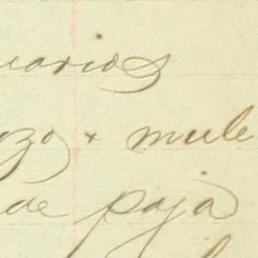 uarios
azo + mule
de paja